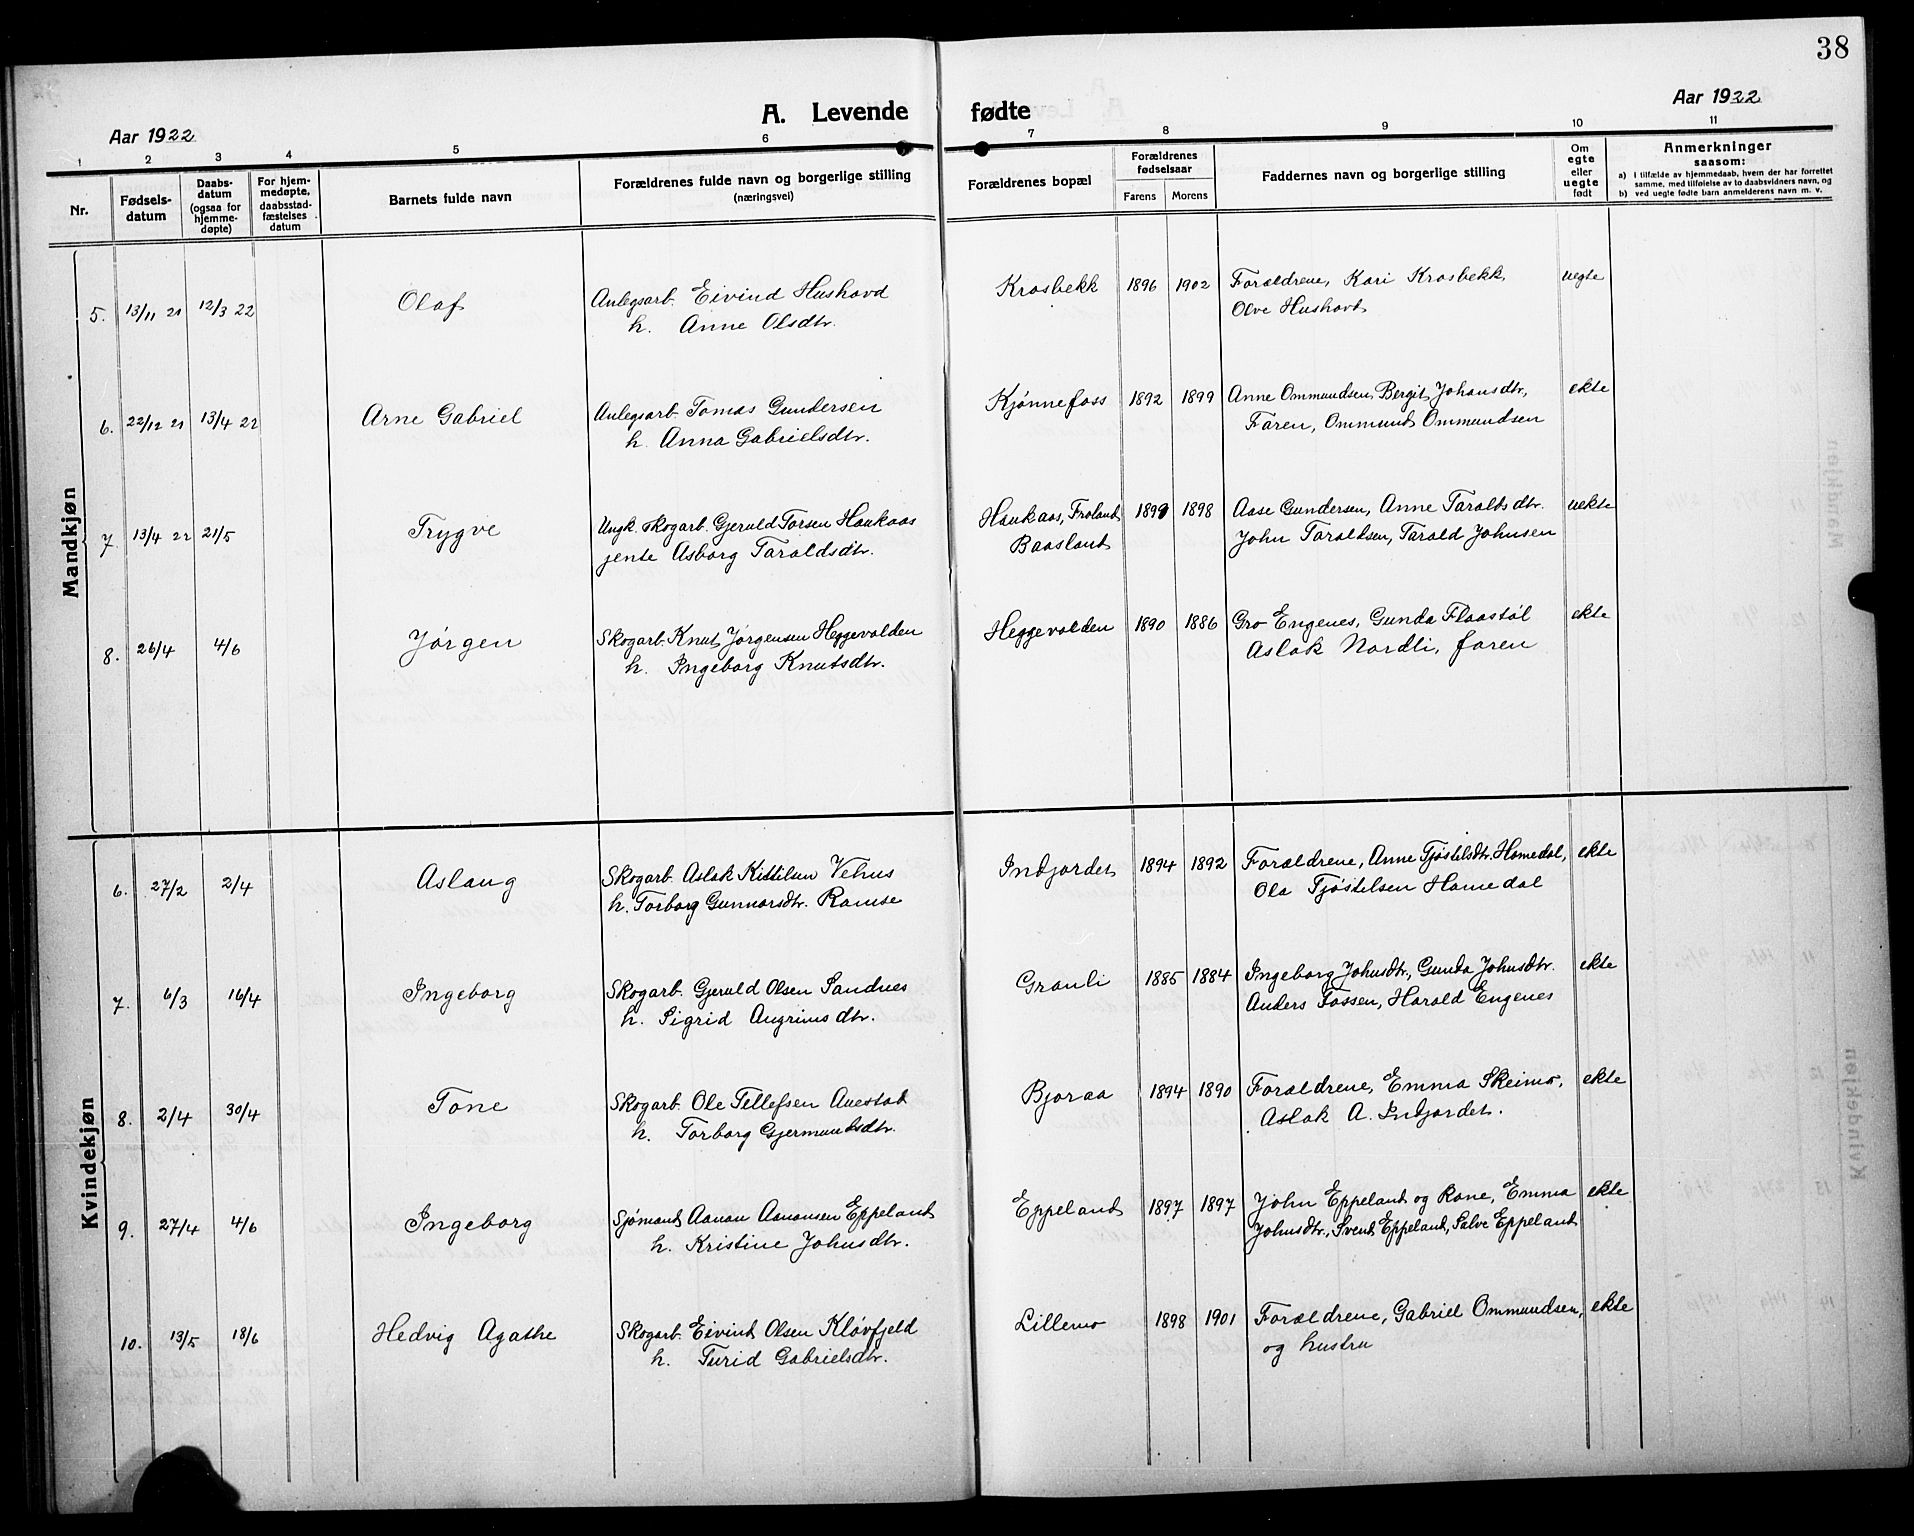 38
A. Levende fødte
Aar 1922
Aar 1922
1 2 3 4 5 6 7 8 9 10 11
Nr.
Fødsels-
datum
Daabs-
datum
(ogsaa for
hjemme-
døpte)
For hjem-
medøpte,
daabsstad-
fæstelses
datum
Barnets fulde navn
Forældrenes fulde navn og borgerlige stilling
(næringsvei)
Forældrenes bopæl
Forældrenes
fødselsaar
Farens Morens
Faddernes navn og borgerlige stilling
Om
egte
eller
uegte
født
Anmerkninger
saasom:
a) I tilfælde av hjemmedaab, hvem der har forrettet
samme, med tilføielse av to daabsvidners navn, og
b) ved uegte fødte barn anmelderens navn m. v.
Mandkjøn
5. 13/11 21 12/3 22 Olaf Anlegsarb. Eivind Hushovd Krosbekk 1896 1902 Forældrene, Kari Krosbekk uegte
h. Anne Olsdtr. Olve Hushovd
6. 22/12 21 13/4 22 Arne Gabriel Anlegsarb. Tomas Gundersen Kjønnefoss 1892 1899 Anne Ommundsen, Bergit Johansdtr, ekte
h. Anna Gabrielsdtr. Faren, Ommund Ommundsen
7. 13/4 22 21/5 Trygve Ungk. skogarb. Gjeruld Torsen Haukaas Haukaas, Froland 1899 1898 Aase Gundersen, Anne Taraldsdtr. uekte
jente Asborg Taraldsdtr. Baasland John Taraldsen, Tarald Johnsen
8. 26/4 4/6 Jørgen Skogarb. Knut Jørgensen Heggevolden Heggevolden 1890 1886 Gro Engenes, Gunda Flaastøl ekte
h. Ingeborg Knutsdtr. Aslak Nordli, faren
Kvindekjøn
6. 27/2 2/4 Aslaug Skogarb. Aslak Kittilsen Vehus Indjordet 1894 1892 Forældrene, Anne Tjøstelsdtr. Homedal, ekte
h. Torborg Gunnarsdtr. Ramse Ola Tjøstelsen Homedal
7. 6/3 16/4 Ingeborg Skogarb. Gjeruld Olsen Sandnes Granli 1885 1884 Ingeborg Johnsdtr., Gunda Johnsdtr. ekte
h. Sigrid Angrimsdtr. Anders Fossen, Harald Engenes
8. 2/4 30/4 Tone Skogarb. Ole Tellefsen Auestad Bjoraa 1894 1890 Forældrene, Emma Skeimo, ekte
h. Torborg Gjermundsdtr. Aslak A. Indjordet.
9. 27/4 4/6 Ingeborg Sjømand Aanon Aanonsen Eppeland Eppeland 1897 1897 John Eppeland og kone, Emma ekte
h. Kristine Johnsdtr. Johnsdtr., Svend Eppeland, Salve Eppeland
10. 13/5 18/6 Hedvig Agathe Skogarb. Eivind Olsen Kløvfjeld Lillemo 1898 1901 Forældrene, Gabriel Ommundsen, ekte
h. Turid Gabrielsdtr. og hustru